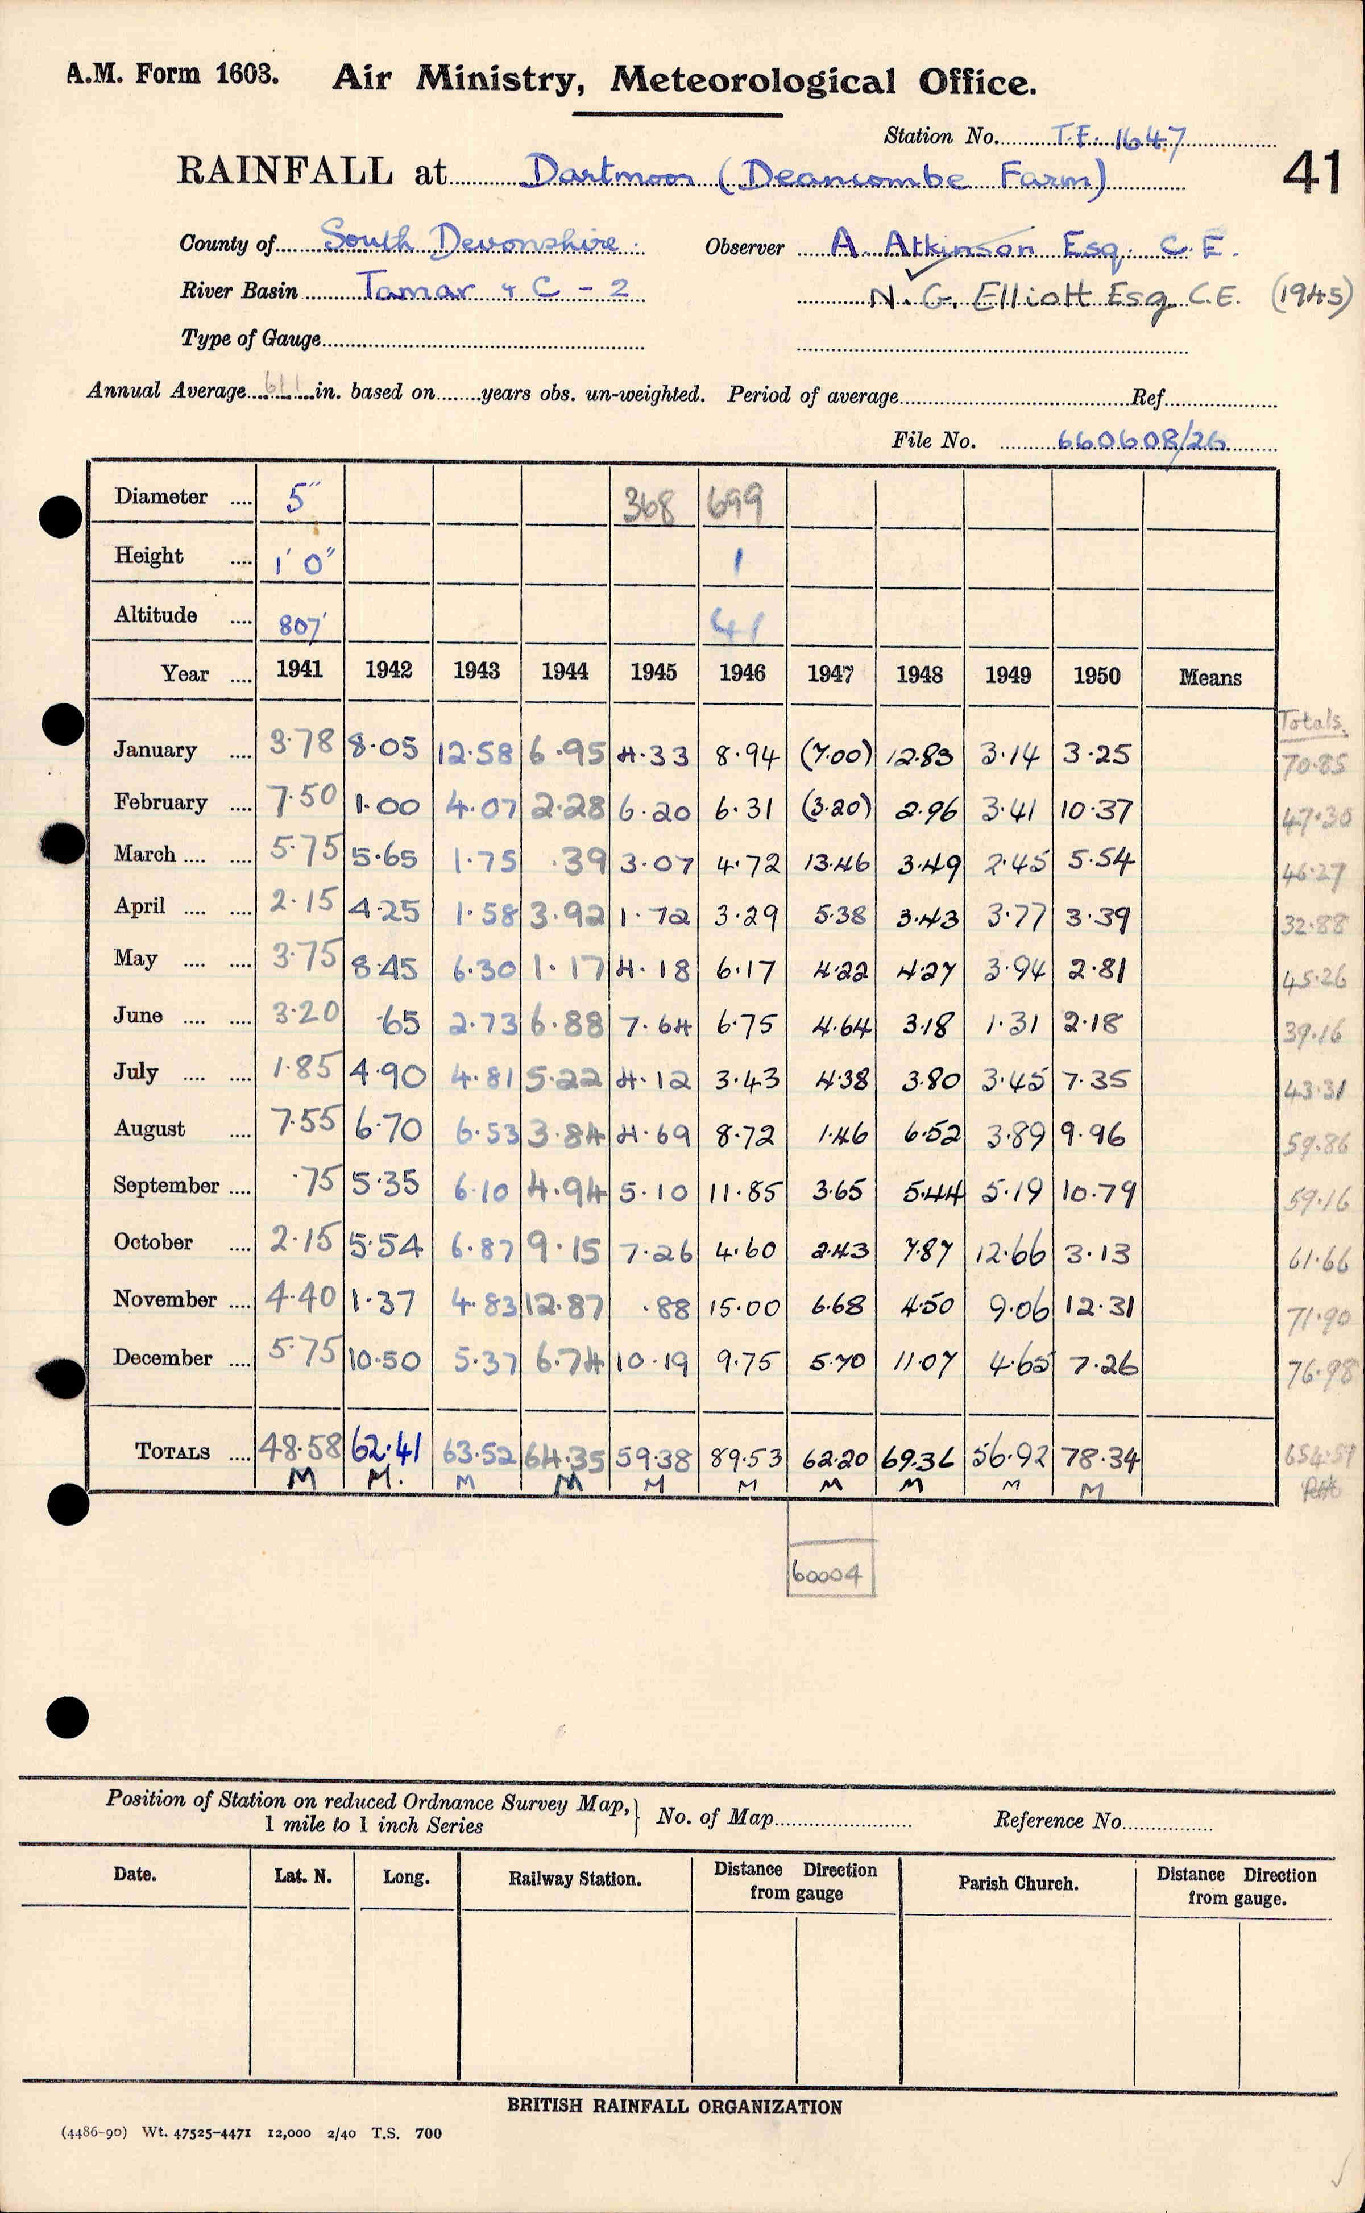 A.M. Form 1603. Air Ministry, Meteorological Office.
Station No. T.F. 1647
41
RAINFALL at Dartmoor (Deancombe Farm)
County of South Devonshire. Observer A. Atkinson Esq. C.E.
River Basin Tamar & C - 2 N. G. Elliott Esq C.E. (1945)
Type of Gauge
Annual Average 611 in. based on years obs. un-weighted. Period of average Ref
File No. 660608/26
Diameter .... 5" 368 699
Height .... 1' 0" 1
Altitude .... 807' 41
Year .... 1941 1942 1943 1944 1945 1946 1947 1948 1949 1950 Means
Totals.
January .... 3.78 8.05 12.58 6.95 4.33 8.94 (7.00) 12.83 3.14 3.25 70.85
February .... 7.50 1.00 4.07 2.28 6.20 6.31 (3.20) 2.96 3.41 10.37 47.30
March .... .... 5.75 5.65 1.75 .39 3.07 4.72 13.46 3.49 2.45 5.54 46.27
April .... .... 2.15 4.25 1.58 3.92 1.72 3.29 5.38 3.43 3.77 3.39 32.88
May .... .... 3.75 8.45 6.30 1.17 4.18 6.17 4.22 4.27 3.94 2.81 45.26
June .... .... 3.20 .65 2.73 6.88 7.64 6.75 4.64 3.18 1.31 2.18 39.16
July .... .... 1.85 4.90 4.81 5.22 4.12 3.43 4.38 3.80 3.45 7.35 43.31
August .... 7.55 6.70 6.53 3.84 4.69 8.72 1.46 6.52 3.89 9.96 59.86
September .... .75 5.35 6.10 4.94 5.10 11.85 3.65 5.44 5.19 10.79 59.16
October .... 2.15 5.54 6.87 9.15 7.26 4.60 2.43 7.87 12.66 3.13 61.66
November .... 4.40 1.37 4.83 12.87 .88 15.00 6.68 4.50 9.06 12.31 71.90
December .... 5.75 10.50 5.37 6.74 10.19 9.75 5.70 11.07 4.65 7.26 76.98
TOTALS .... 48.58 62.41 63.52 64.35 59.38 89.53 62.20 69.36 56.92 78.34 654.59
M M. M M M M M M M M
60004
Position of Station on reduced Ordnance Survey Map, } No. of Map Reference No.
1 mile to 1 inch Series
Date. Lat. N. Long. Railway Station. Distance Direction from gauge Parish Church. Distance Direction from gauge.
BRITISH RAINFALL ORGANIZATION
(4486-90) Wt. 47525-4471 12,000 2/40 T.S. 700